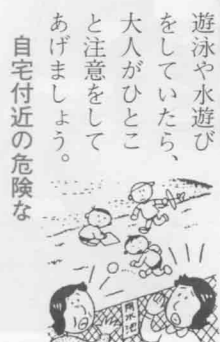 遊泳や水遊び
をしていたら、
大人がひとこ
と注意をして
あげましょう。
自宅付近の危険な
用水池